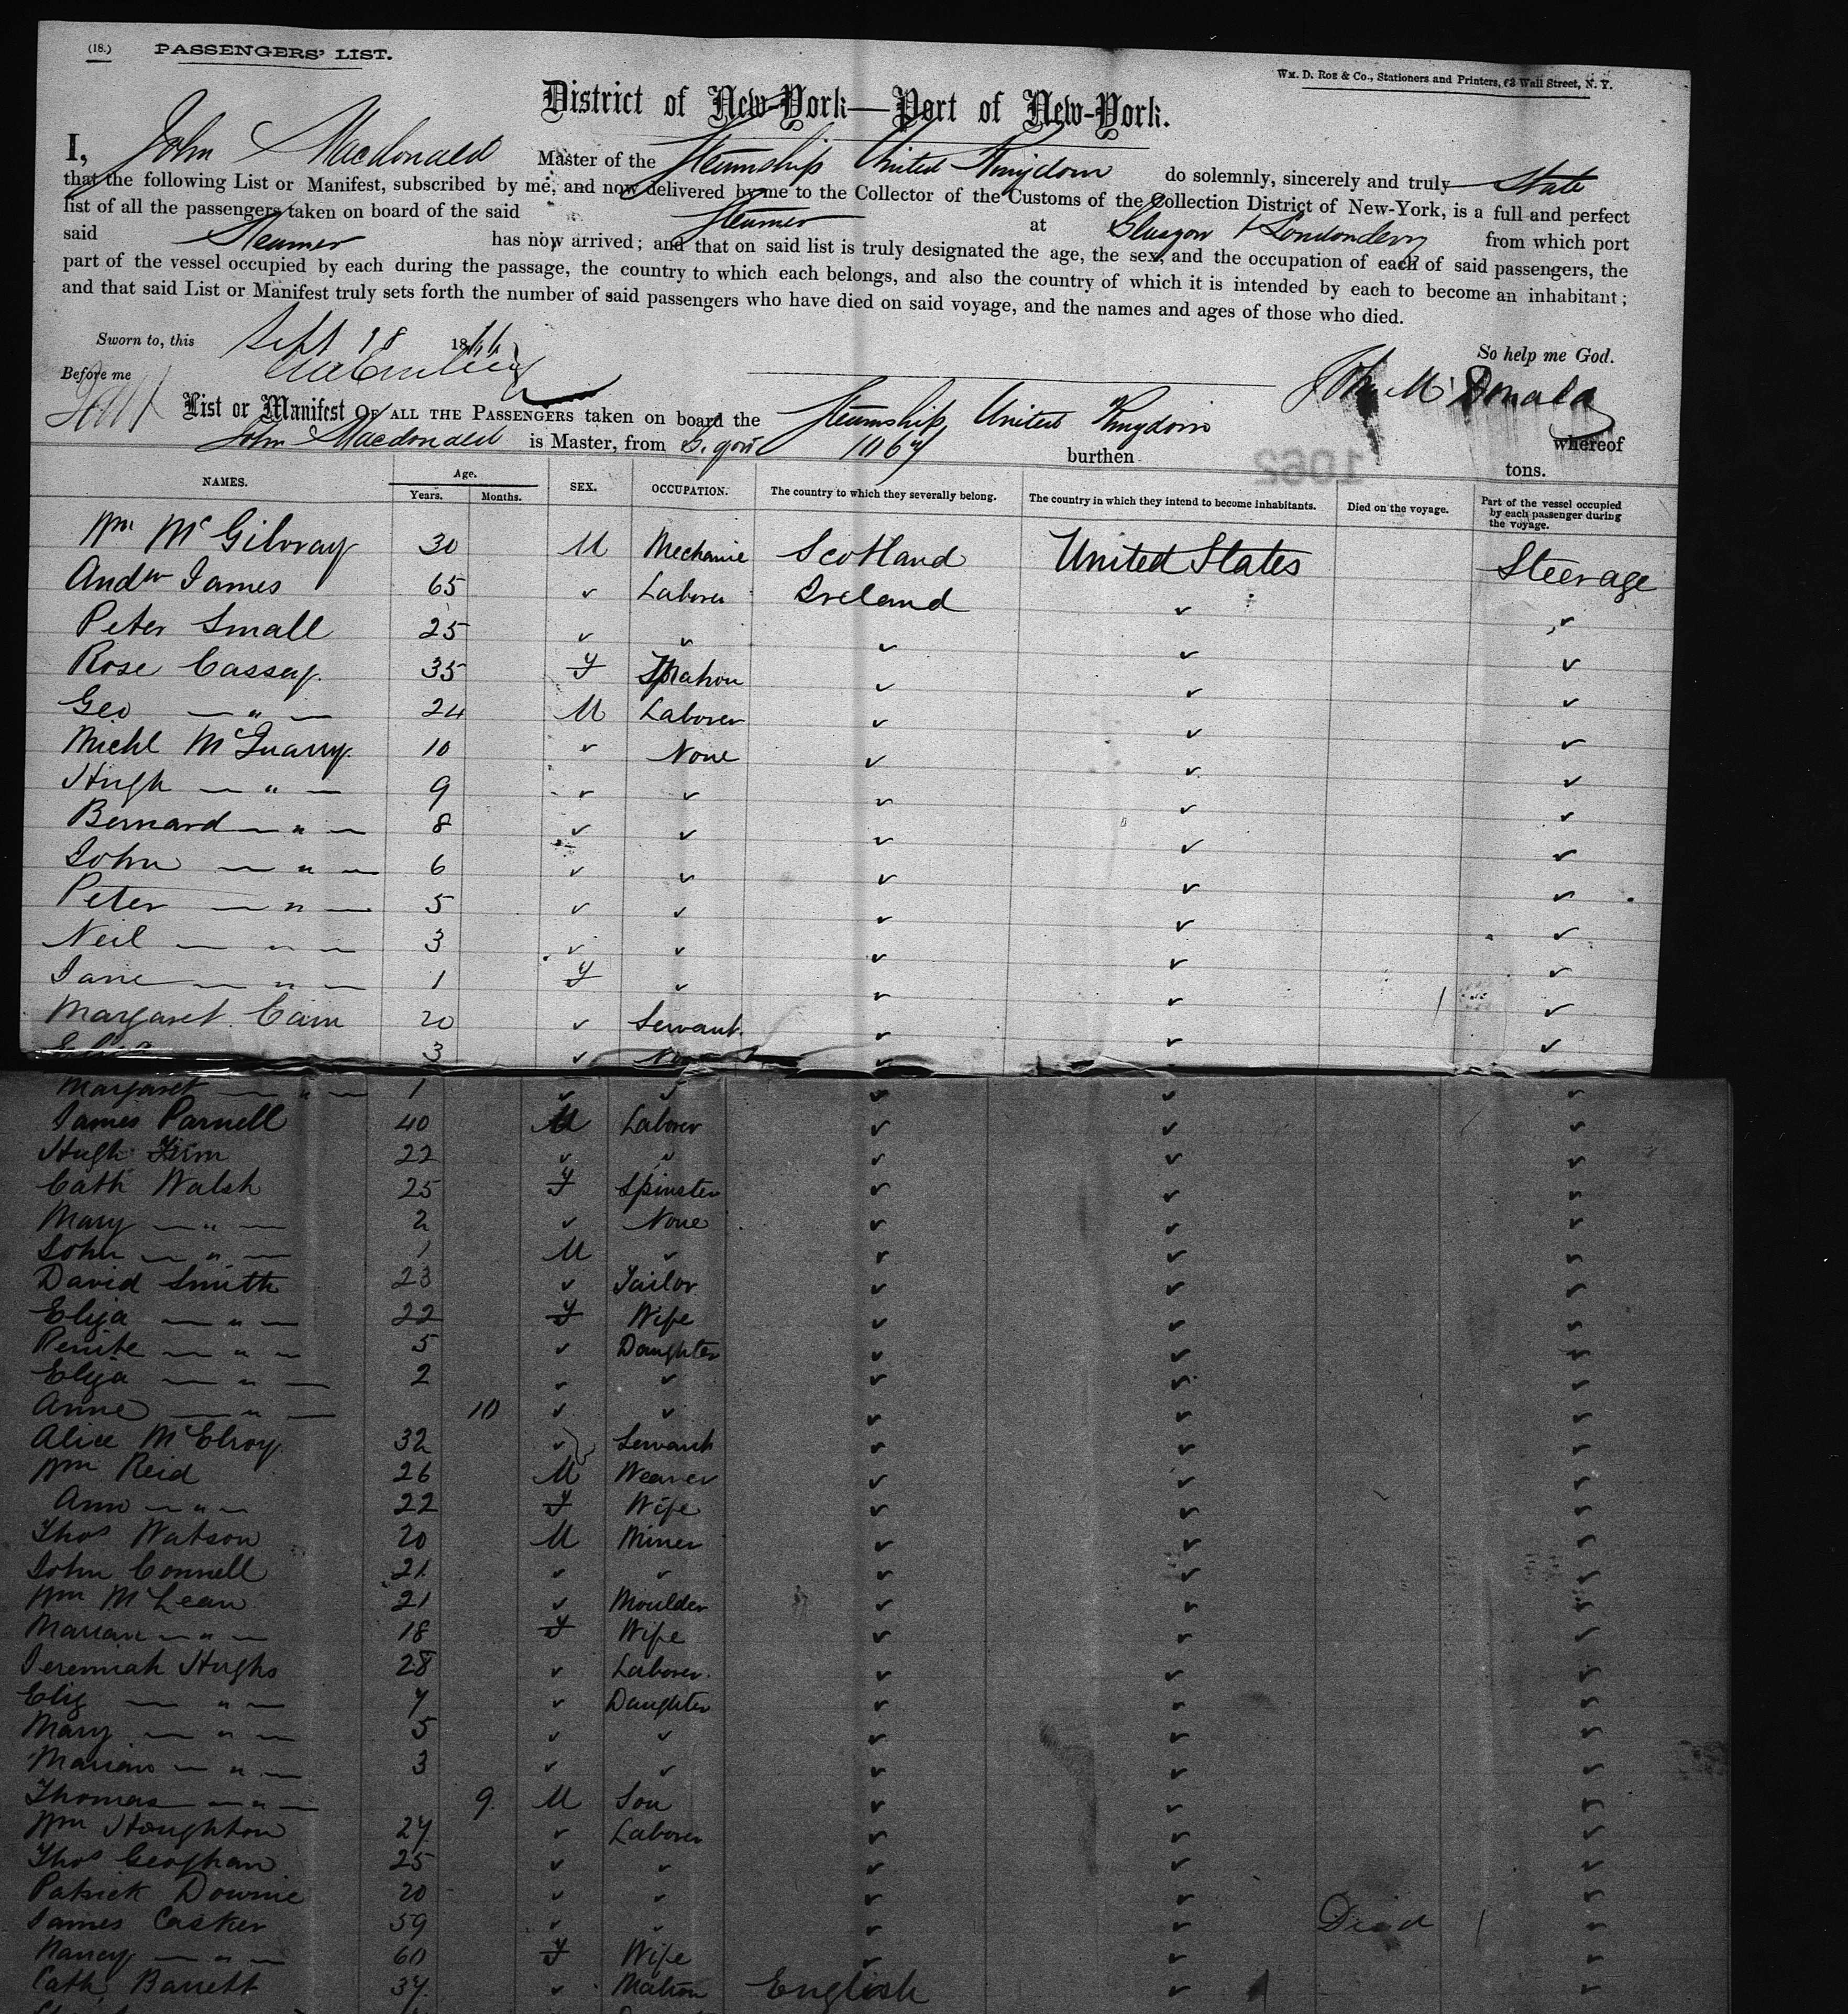 (18.) PASSENGERS' LIST.
Wm. D. Roe & Co., Stationers and Printers, 62 Wall Street, N. Y.
District of New-York—Port of New-York.
I, John Macdonald Master of the Steamship United Kingdom do solemnly, sincerely and truly State
that the following List or Manifest, subscribed by me, and now delivered by me to the Collector of the Customs of the Collection District of New-York, is a full and perfect
list of all the passengers taken on board of the said Steamer at Glasgow & Londonderry from which port
said Steamer has now arrived; and that on said list is truly designated the age, the sex, and the occupation of each of said passengers, the
part of the vessel occupied by each during the passage, the country to which each belongs, and also the country of which it is intended by each to become an inhabitant;
and that said List or Manifest truly sets forth the number of said passengers who have died on said voyage, and the names and ages of those who died.
Sworn to, this Sept 18 1866 So help me God.
Before me John McDonald
List or Manifest OF ALL THE PASSENGERS taken on board the Steamship United Kingdom whereof
John Macdonald is Master, from G.gow 1067 burthen tons.
1062
NAMES. Age. Years. Months. SEX. OCCUPATION. The country to which they severally belong. The country in which they intend to become inhabitants. Died on the voyage. Part of the vessel occupied by each passenger during the voyage.
Wm McGilvray 30 M Mechanic Scotland United States Steerage
Andw James 65 ✓ Laborer Ireland ✓ ✓
Peter Small 25 ✓ ✓ ✓ ✓ ✓
Rose Cassey 35 F Matron ✓ ✓ ✓
Geo — " — 24 M Laborer ✓ ✓ ✓
Michl McQuarry 10 ✓ None ✓ ✓ ✓
Hugh — " — 9 ✓ ✓ ✓ ✓ ✓
Bernard — " — 8 ✓ ✓ ✓ ✓ ✓
John — " — 6 ✓ ✓ ✓ ✓ ✓
Peter — " — 5 ✓ ✓ ✓ ✓ ✓
Neil — " — 3 ✓ ✓ ✓ ✓ ✓
Jane — " — 1 F ✓ ✓ ✓ ✓
Margaret Cain 20 ✓ Servant ✓ ✓ 1 ✓
3 ✓ ✓ ✓ ✓
Margaret — " — 1 ✓ ✓ ✓ ✓ ✓
James Parnell 40 M Laborer ✓ ✓ ✓
Hugh 22 ✓ " ✓ ✓ ✓
Cath Walsh 25 F Spinster ✓ ✓ ✓
Mary — " — 2 ✓ None ✓ ✓ ✓
John — " — 1 M ✓ ✓ ✓ ✓
David Smith 23 ✓ Tailor ✓ ✓ ✓
Eliza — " — 22 F Wife ✓ ✓ ✓
— " — 5 ✓ Daughter ✓ ✓ ✓
Eliza — " — 2 ✓ ✓ ✓ ✓ ✓
Anne — " — 10 ✓ ✓ ✓ ✓ ✓
Alice McElroy 32 ✓ Servant ✓ ✓ ✓
Wm Reid 26 M Weaver ✓ ✓ ✓
Ann — " — 22 F Wife ✓ ✓ ✓
Thos Watson 20 M Miner ✓ ✓ ✓
John Connell 21 ✓ ✓ ✓ ✓ ✓
Wm McLean 21 ✓ Moulder ✓ ✓ ✓
Marian — " — 18 F Wife ✓ ✓ ✓
Jeremiah Hughs 28 ✓ Laborer ✓ ✓ ✓
Eliz — " — 7 ✓ Daughter ✓ ✓ ✓
Mary — " — 5 ✓ ✓ ✓ ✓ ✓
Marian — " — 3 ✓ ✓ ✓ ✓ ✓
Thomas — " — 9 M Son ✓ ✓ ✓
Wm Houghton 27 ✓ Laborer ✓ ✓ ✓
Thos Geoghan 25 ✓ ✓ ✓ ✓ ✓
Patrick Downie 20 ✓ ✓ ✓ ✓ ✓
James Casker 59 ✓ ✓ ✓ ✓ Died 1 ✓
Nancy — " — 60 F Wife ✓ ✓ ✓
Cath Barrett 37 ✓ Matron English ✓ ✓